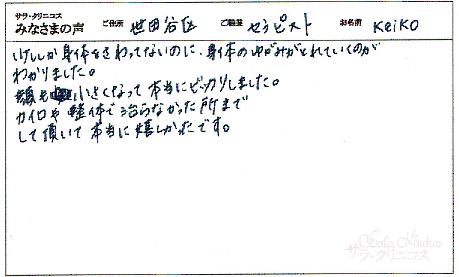 サラ・クリニコス
みなさまの声 ご住所 世田谷区 ご職業 セラピスト お名前 KeiKO
しか身体をさわってないのに、身体のゆがみがとれていくのが
わかりました。
顔も小さくなって本当にビックリしました。
カイロや整体で治らなかった所まで
して頂いて本当に嬉しかったです。
サラ・クリニコス